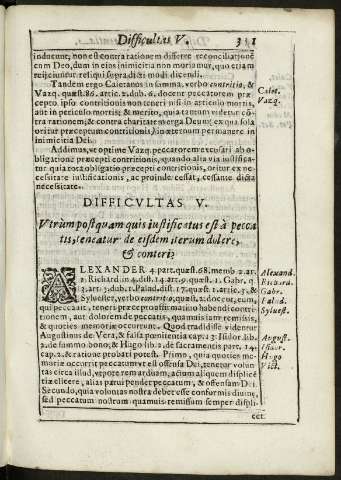 Difficultas V. 31
inducunt, non est contra rationem differre reconciliationē
cum Deo, dum in eius inimicitia non moriamur, quo etiam
reijciuntur reliqui supradicti modi dicendi.
Tandem ergo Caietanus in summa, verbo contritio, &
Vazq. quæst. 86. artic. 2. dub. 6. docent peccatorem præ-
cepto ipso contritionis non teneri nisi in articulo mortis,
aut in periculo mortis; & merito, quia tantùm videtur cō-
tra rationem; & contra charitatē erga Deum; ex sua sola
oritur præceptum contritionis) in æternum permanere in
inimicitia Dei.
Caiet.
Vazq.
Addimus, ve optime Vazq. peccatorem excusari ab o-
bligatione præcepti contritionis, quando alia via iustifica-
tur quia tota obligatio præcepti contritionis, oritur ex ne-
cessitate iustificationis, ac proinde cessat, cessante dicta
necessitate.
DIFFICULTAS V.
Vtrùm postquam quis iustificatus est à pecca
tis, teneatur de eisdem iterum dolere,
& conteri?
ALEXANDER 4. part. quæst. 68. memb. 2. ar.
2. Richard. in 4. dist. 14. art. 9. quæst. 1. Gabr. q.
3. art. 3. dub. 1. Palud. dist. 17. quæst. 1. artic. 3. &
Syluester, verbo contritio, quæst. 2. docet, eum,
qui peccauit, teneri præcepto maximo habendi contri-
tionem, aut dolorem de peccatis, quamuis iam remissis,
& quoties memoriæ occurrunt. Quod tradidisse videntur
Augustinus de Vera, & falsa pœnitentia cap. 13. Isidor. lib.
2. de summo bono, & Hugo lib. 2. de sacramentis part. 14.
cap. 2. & ratione probati potest. Primo, quia quoties me-
moriæ occurrit peccatum, vt est offensa Dei, tenetur volun-
tas circa illud, vt pote rem arduam, actum aliquem displicē
tiæ elicere, alias patui pendet peccatum, & offensam Dei.
Secundo, quia voluntas nostra debet esse conformis diuinæ,
sed peccatum nostrum quamuis remissum semper displi-
Alexand.
Richard.
Gabr.
Palud.
Syluest.
August.
Isidor.
Hugo
Vict.
cet: